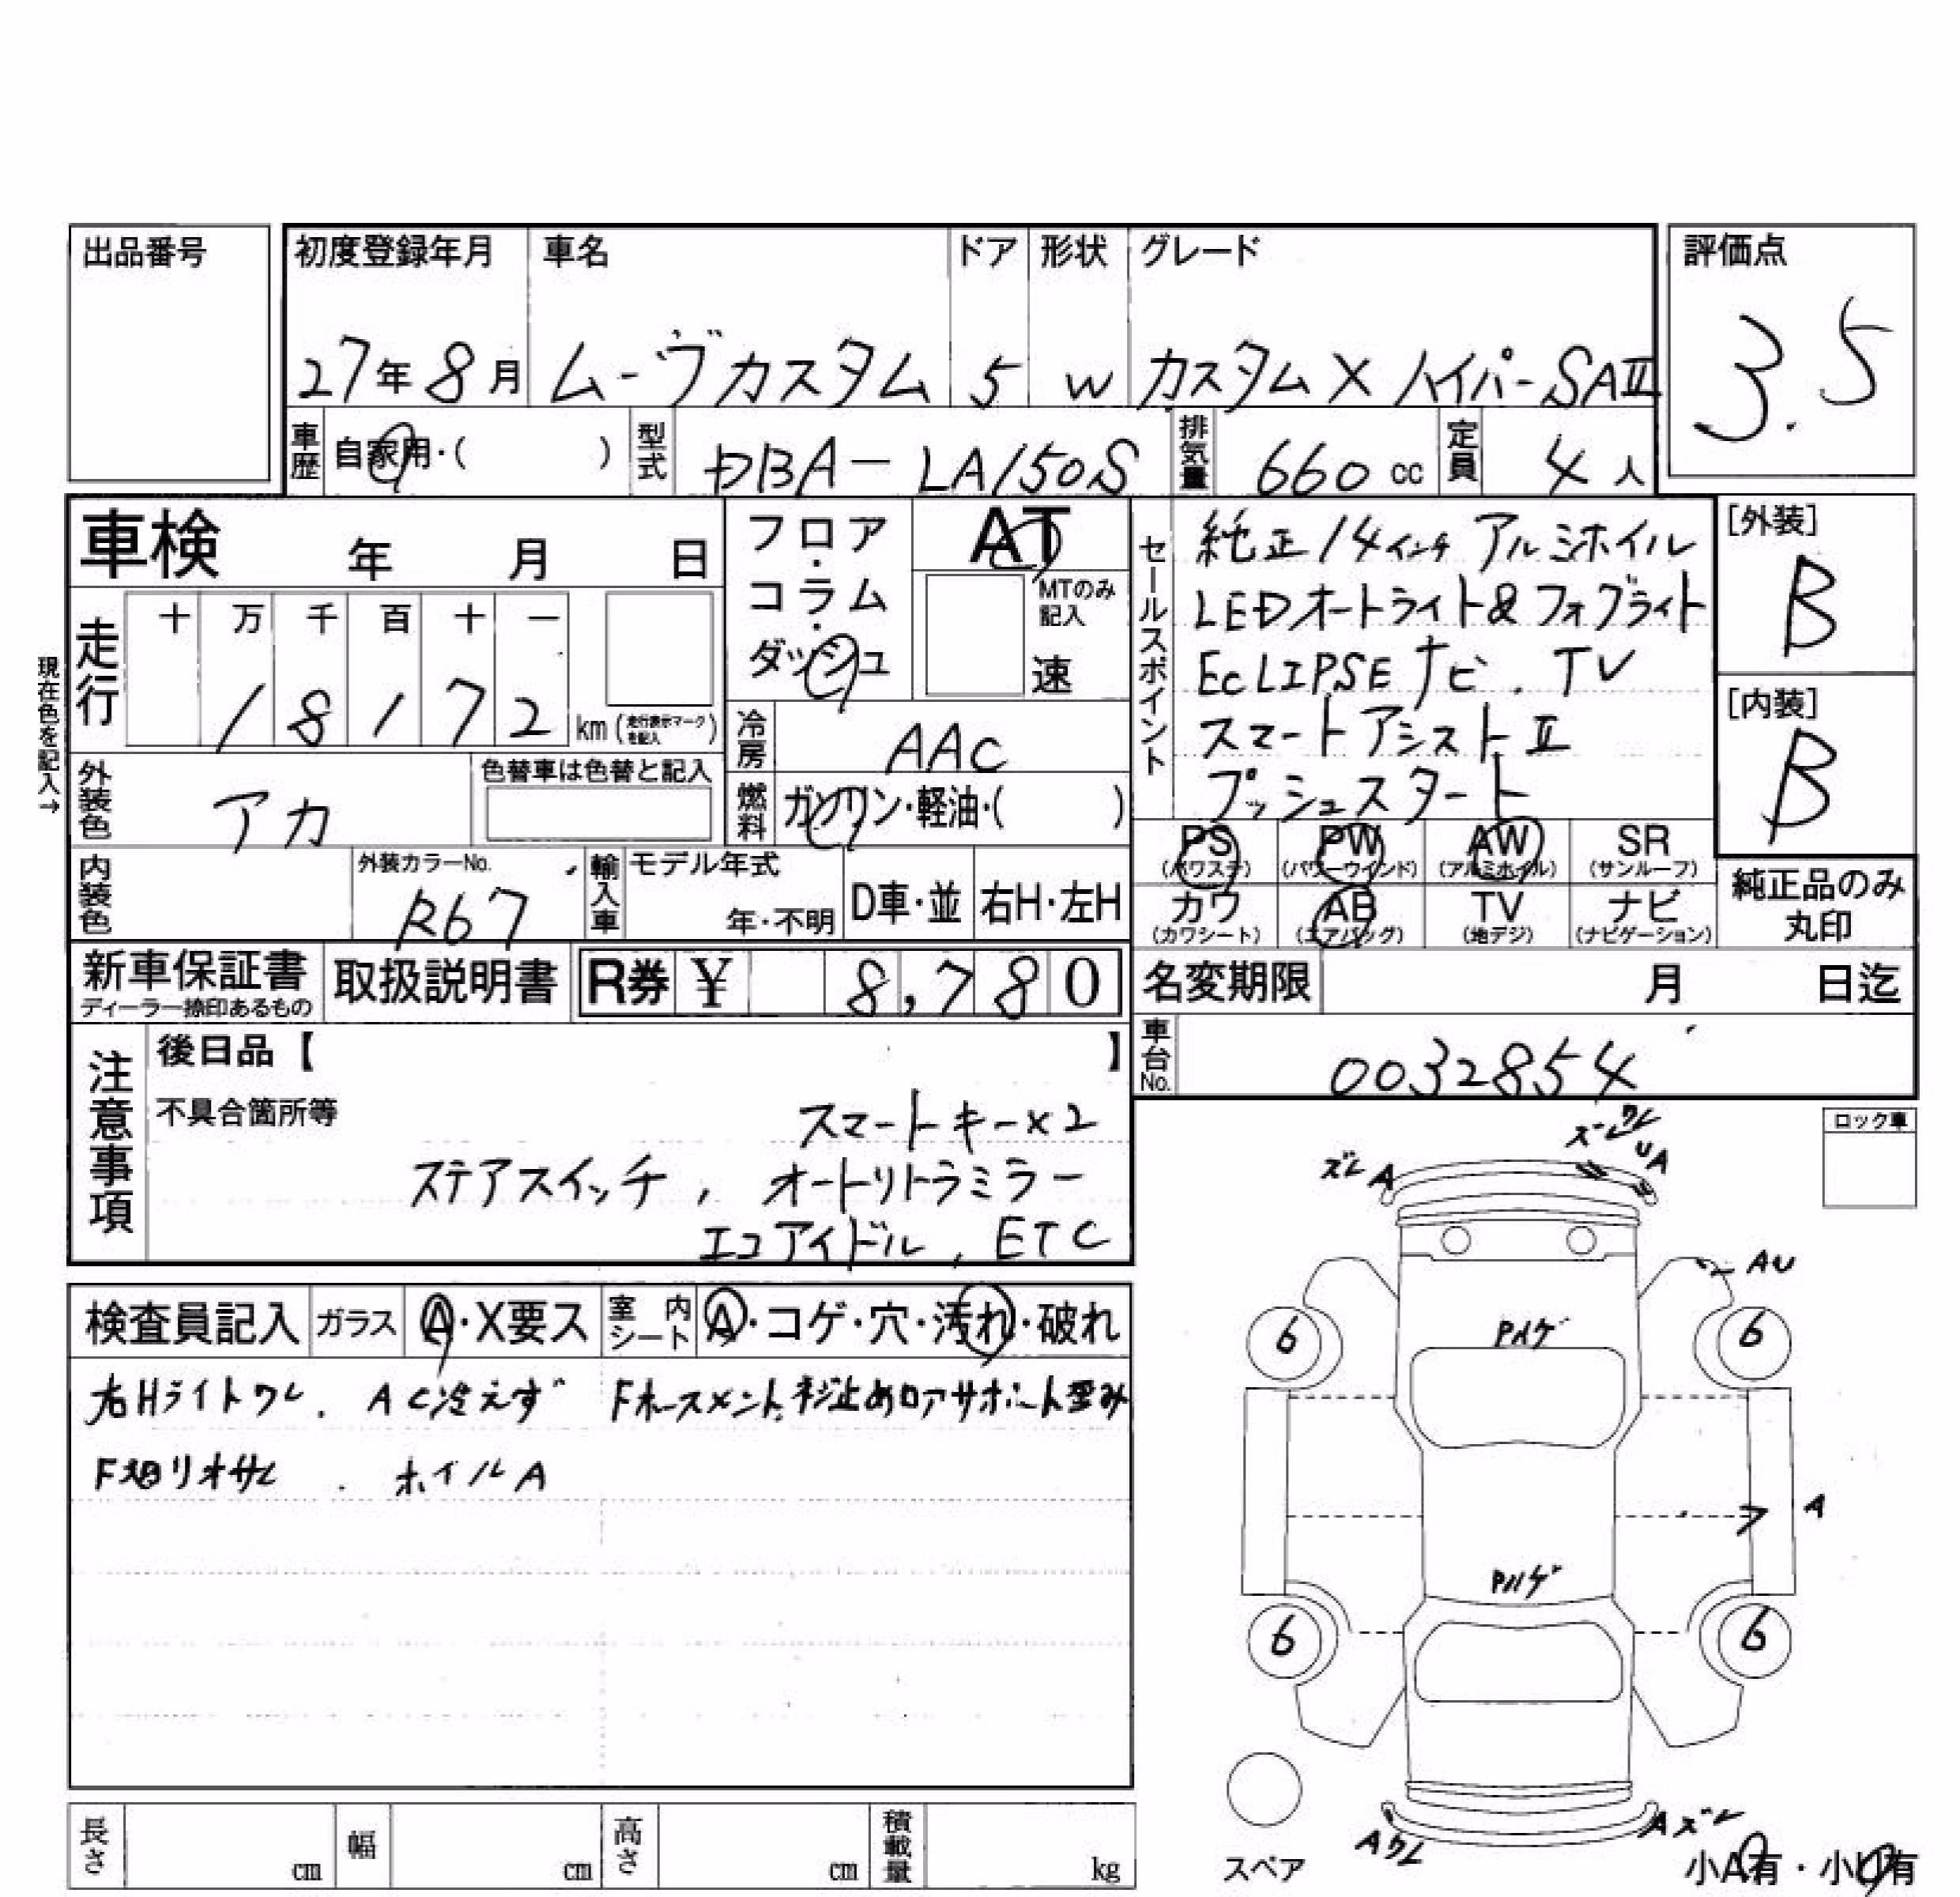 出品番号
初度登録年月 車名 ドア 形状 グレード
27年8月 ムーヴカスタム 5 W カスタムX ハイパーSAⅡ
評価点
3.5
車歴 自家用・( ) 型式 DBA-LA150S 排気量 660cc 定員 4人
車検 年 月 日
走行 十 万 千 百 十 一
18172 km (走行表示マークを記入)
現在色を記入→
外装色 アカ 色替車は色替と記入
内装色 外装カラーNo. R67
輸入車 モデル年式 年・不明 D車・並 右H・左H
フロア・コラム・ダッシュ
AT
MTのみ記入
速
冷房 AAC
燃料 ガソリン・軽油・( )
セールスポイント
純正14インチ アルミホイル
LEDオートライト&フォグライト
ECLIPSEナビ.TV
スマートアシストⅡ
プッシュスタート
[外装]
B
[内装]
B
PS (パワステ) PW (パワーウインド) AW (アルミホイル) SR (サンルーフ)
カワ (カワシート) AB (エアバッグ) TV (地デジ) ナビ (ナビゲーション)
純正品のみ丸印
新車保証書 ディーラー捺印あるもの
取扱説明書
R券 ¥ 8,780
名変期限 月 日迄
車台No. 0032854
注意事項
後日品【 】
不具合箇所等
スマートキー×2
ステアスイッチ, オートリトラミラー
エコアイドル, ETC
検査員記入 ガラス A・X要ス 室内シート A・コゲ・穴・汚れ・破れ
右Hライトワレ. AC冷えず Fホースメント、ネジ止めロアサポート歪み
F廻リオサレ . ホイルA
ロック車
ズレ A
ズレワレ
UA
AU
6
6
Pハゲ
A
Pハゲ
6
6
Aワレ
Aズレ
スペア
小A有・小U有
長さ cm 幅 cm 高さ cm 積載量 kg